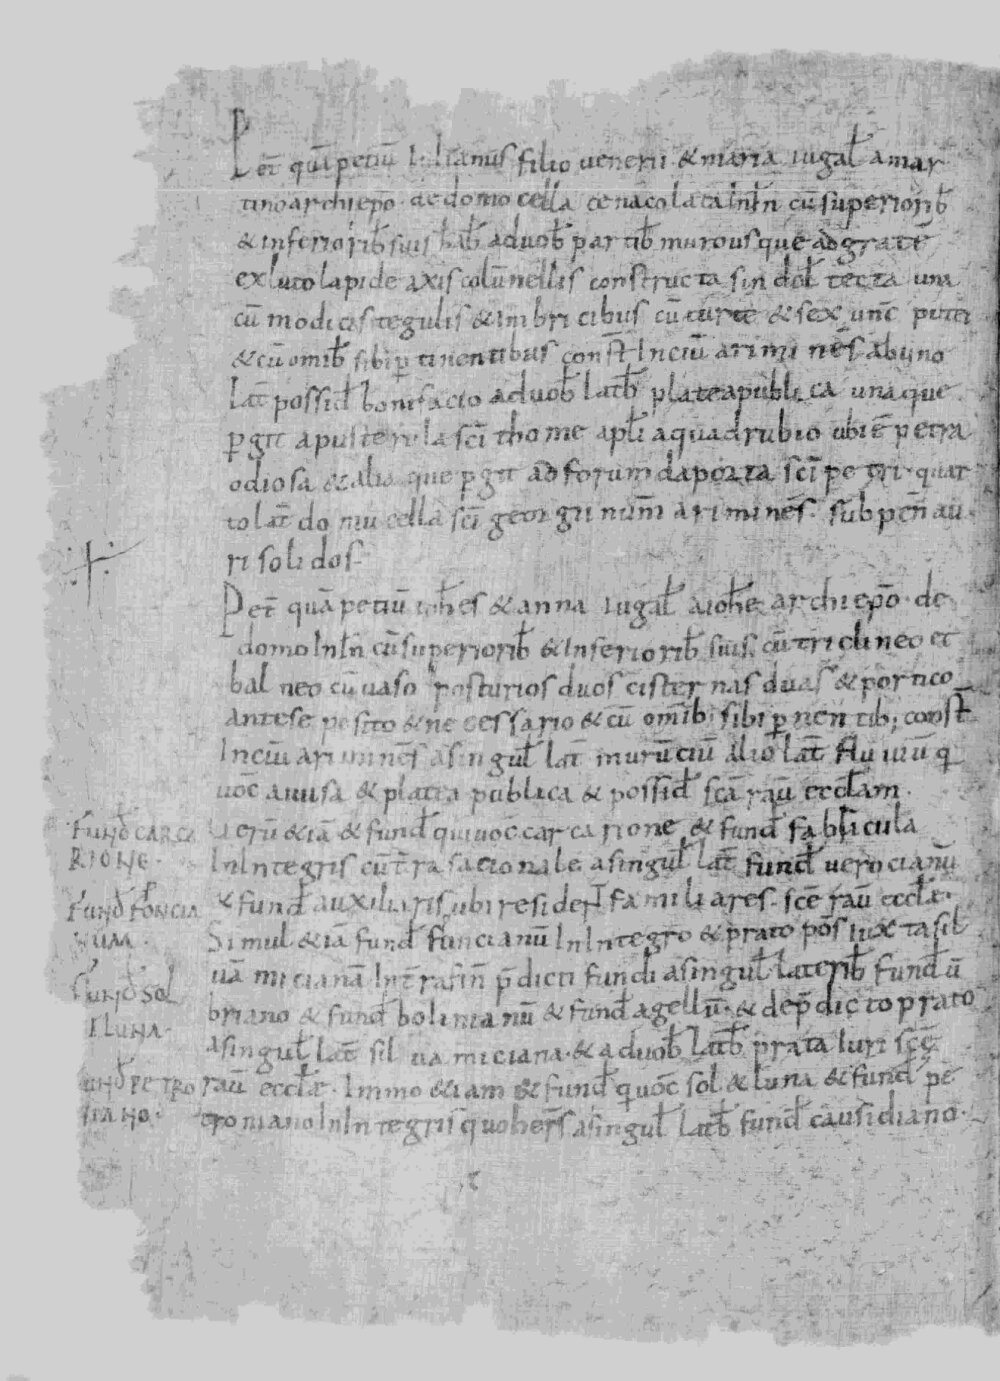 Pet̄ quā petiū Iulianus filio uenerii & maria iugal̄ a mar
tino archiepō · de domo cella cenacolata Inln̄ cū superiorib̄
& inferiorib̄ suis hab̄ a duob̄ partib̄ muros usque ad grate
ex luto lapide axis colūnellis constructa sindol̄ tecta una
cū modicis tegulis & imbricibus cū curte & sex unc̄ putei
& cū omib̄ sibi ꝑtinentibus const̄ In ciū arimines̄ ab uno
lat̄ possid̄ bonifacio a duob̄ latb̄ platea publica una que
ꝑgit a pusterula scī thome apl̄i a quadrubio ubi ē petra
odiosa & alia que ꝑgit ad forum da porta scī petri · quar
to lat̄ domucella scī georgii num̄ arimines̄ · sub pen̄ au
ri solidos
Pet̄ quā petiū ioh̄es & anna iugal̄ a ioh̄e archiepō · de
domo Inln̄ cū superiorib̄ & Inferiorib̄ suis, cū triclineo et
balneo cū uaso posturios duos cisternas duas & portico
antese posito & necessario & cū omib; sibi ꝑnentib; const̄
In ciū arimines̄ a singul̄ lat̄ murū ciū alio lat̄ fluuiū q
uoc̄ auusa & platea publica & possid̄ scā rau̅ eccl̄am ·
Uerū &iā & fund̄ qui uoc̄ carcarione & fund̄ fablicula
InIntegris cū t̄ra sacionale a singul̄ lat̄ fund̄ uerocianū
& fund̄ auxiliaris, ubi residet̄ familiares · scē rau̅ eccl̄æ ·
Simul &iā fund̄ funcianū InIntegro & prato pos̄ iuxta sil
uā micianā Int̄ra fin̄ p̄dicti fundi a singul̄ laterib̄ fund̄ ū
briano & fund̄ bolinianū & fund̄ agellū · & de p̄dicto prato
a singul̄ lat̄ silua miciana · & a duob̄ latb̄ prata Iuri scē
rau̅ eccl̄æ · Immo &iam & fund̄ q uoc̄ sol & luna & fund̄ pe
troniano InIntegris quoher̄s a singul̄ latb̄ fund̄ causidiano ·
FUND̄ CARCA
RIONE ·
FUND̄ FONCIA
NUM ·
FUND̄ SOL
& LUNA ·
UND̄ PETRO
NIANO ·